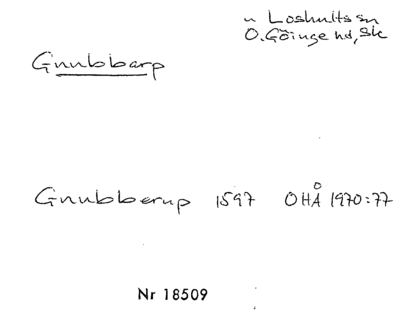 n Loshults sn
Ö. Göinge hd, Sk
Gnubbarp
Gnubberup 1597 OHÅ 1970:77
Nr 18509